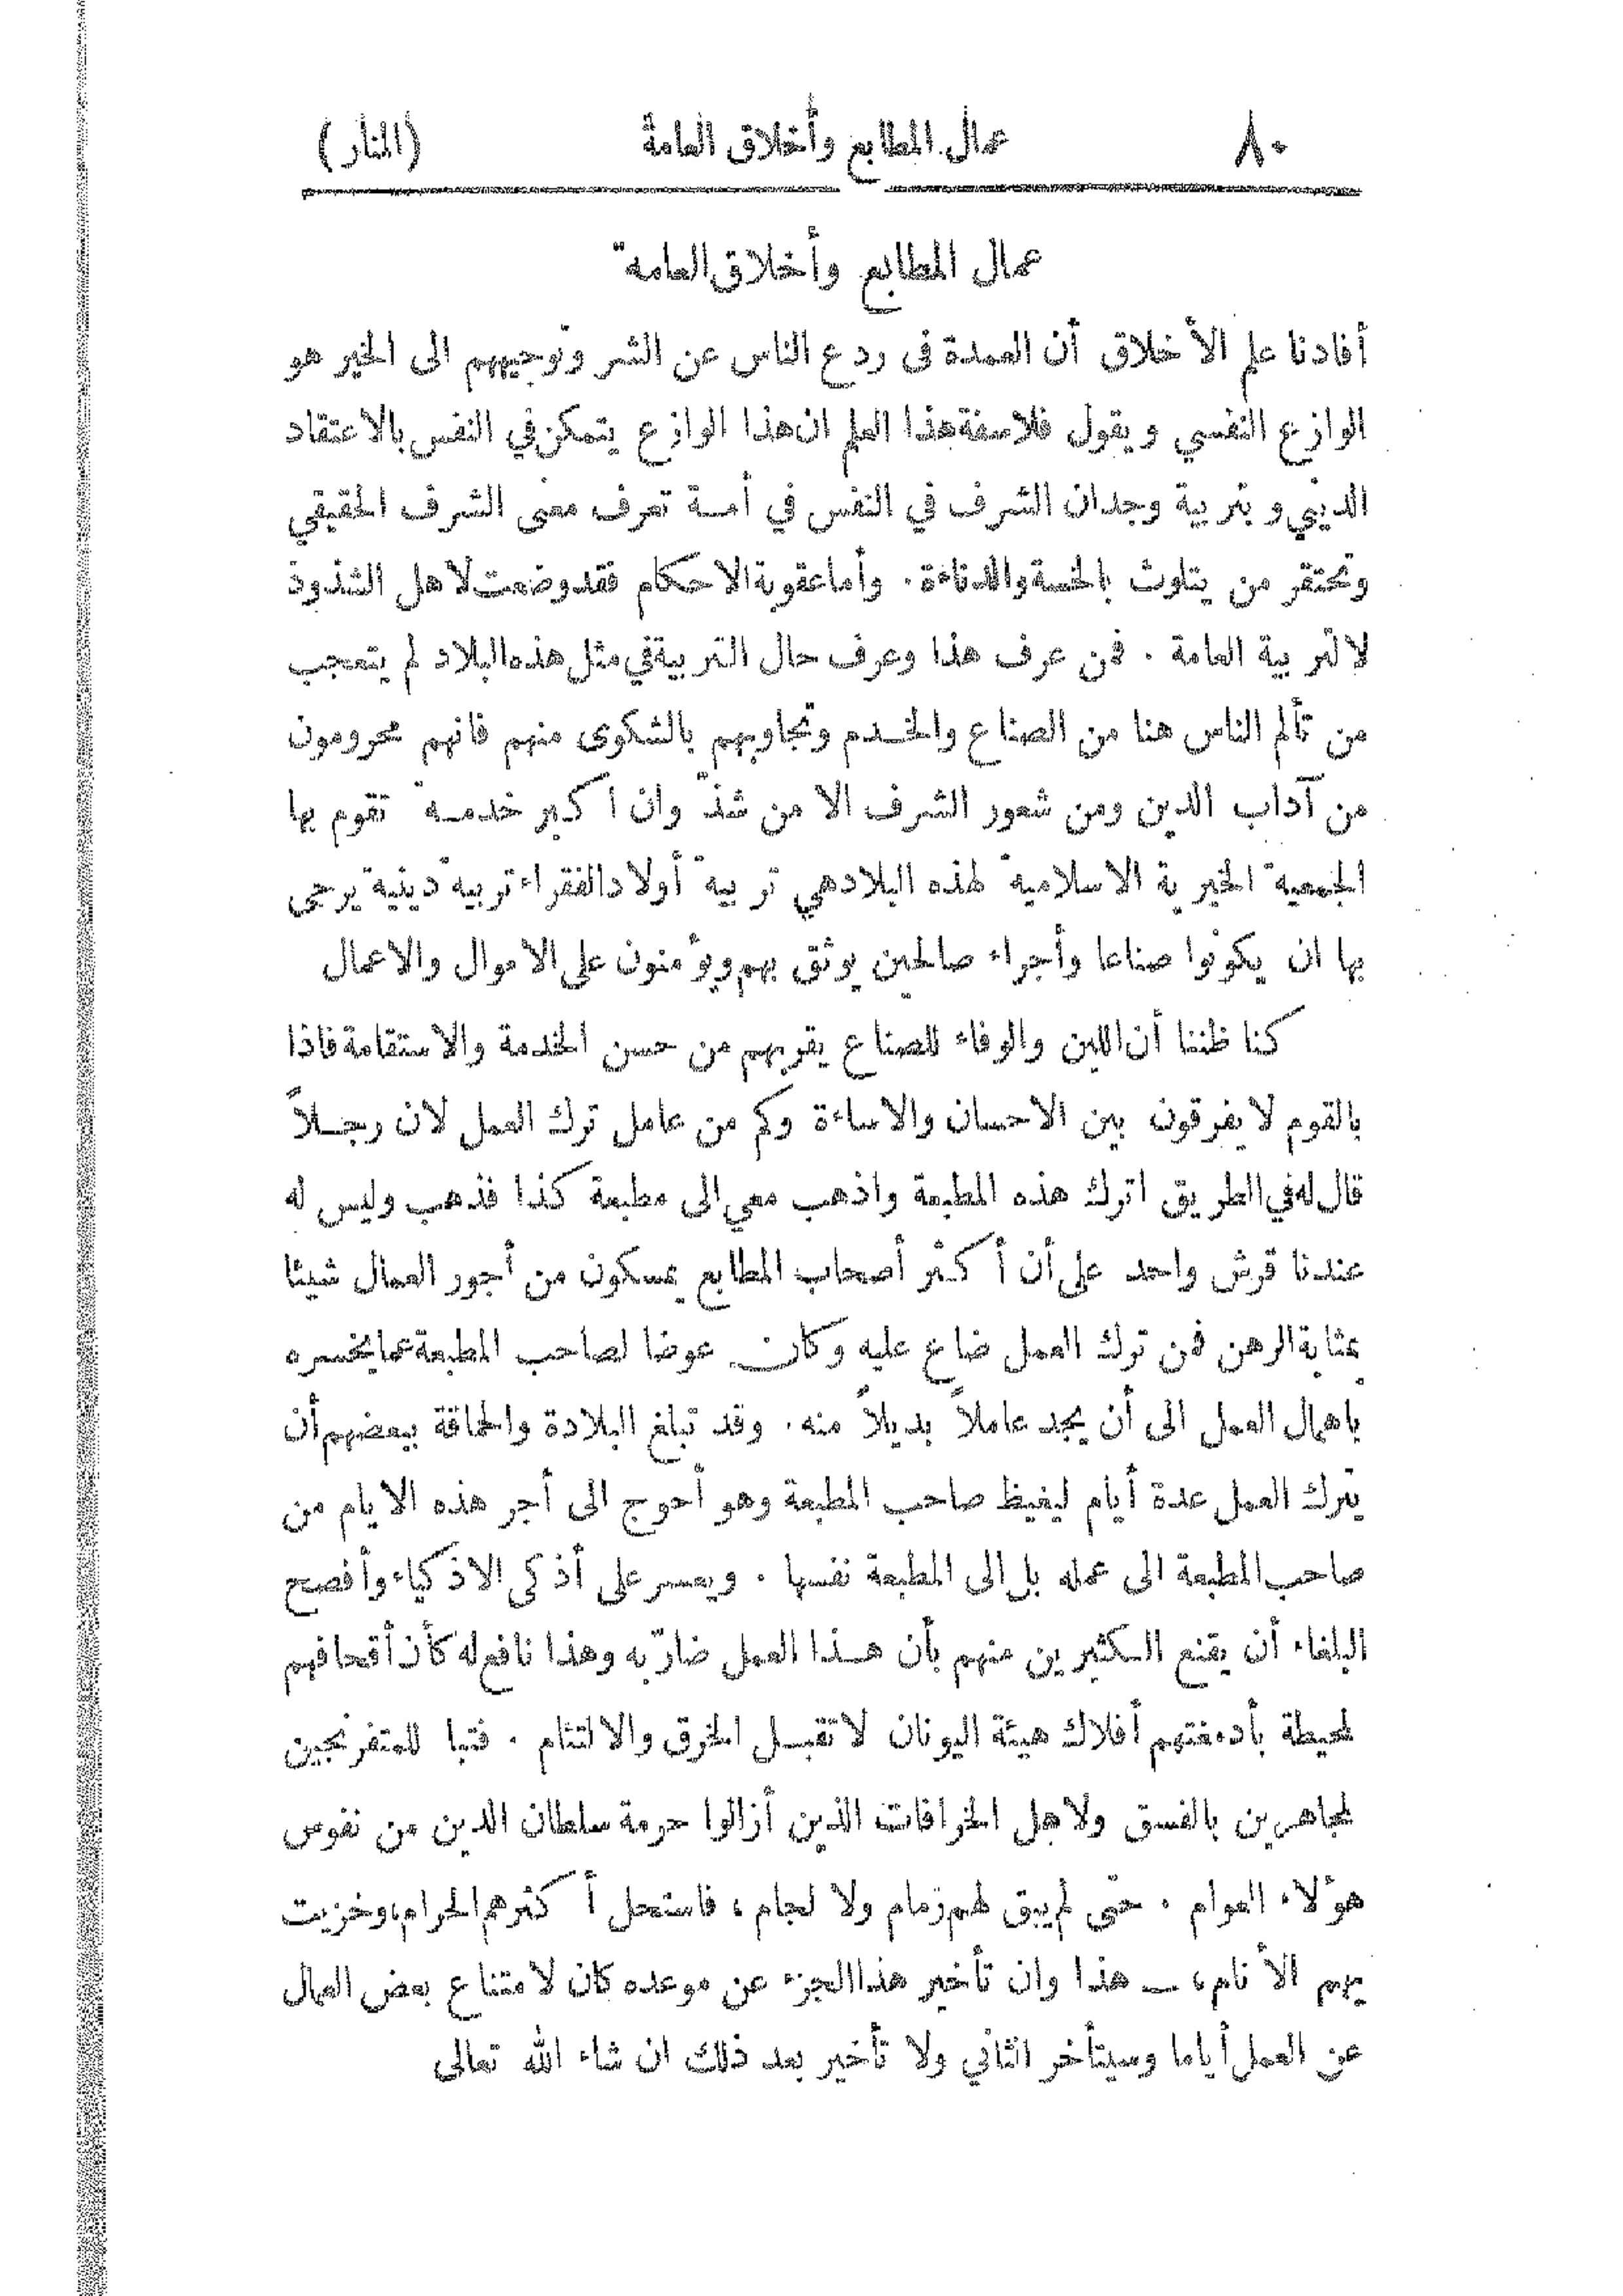 ٨٠ عمال المطابع وأخلاق العامة (المنار)
عمال المطابع وأخلاق العامة
أفادنا علم الأخلاق أن العمدة فى ردع الناس عن الشر وتوجيههم الى الخير هو
الوازع النفسي ويقول فلاسفة هذا العلم ان هذا الوازع يتمكن في النفس بالاعتقاد
الديني وبتربية وجدان الشرف في النفس في أمة تعرف معنى الشرف الحقيقي
وتحتقر من يتلوث بالخسة والدناءة . وأما عقوبة الاحكام فقد وضعت لاهل الشذوذ
لا لتربية العامة . فمن عرف هذا وعرف حال التربية في مثل هذه البلاد لم يتعجب
من تألم الناس هنا من الصناع والخدم وتجاوبهم بالشكوى منهم فانهم محرومون
من آداب الدين ومن شعور الشرف الا من شذّ وان أكبر خدمة تقوم بها
الجمعية الخيرية الاسلامية لهذه البلاد هي تربية أولاد الفقراء تربية دينية يرجى
بها ان يكونوا صناعا وأجراء صالحين يوثق بهم ويؤمنون على الاموال والاعمال
كنا ظننا أن اللين والوفاء للصناع يقربهم من حسن الخدمة والاستقامة فاذا
بالقوم لا يفرقون بين الاحسان والاساءة وكم من عامل ترك العمل لان رجلاً
قال له في الطريق اترك هذه المطبعة واذهب معي الى مطبعة كذا فذهب وليس له
عندنا قرش واحد على أن أكثر أصحاب المطابع يمسكون من أجور العمال شيئا
بمثابة الرهن فمن ترك العمل ضاع عليه وكان عوضا لصاحب المطبعة عما يخسره
باهمال العمل الى أن يجد عاملاً بديلاً منه . وقد تبلغ البلادة والحماقة ببعضهم أن
يترك العمل عدة أيام ليغيظ صاحب المطبعة وهو أحوج الى أجر هذه الايام من
صاحب المطبعة الى عمله بل الى المطبعة نفسها . ويعسر على أذكى الاذكياء وأفصح
البلغاء أن يقنع الكثيرين منهم بأن هذا العمل ضارّ به وهذا نافع له كأن أقحافهم
لمحيطة بأدمغتهم أفلاك هيئة اليونان لا تقبل الخرق والالتئام . فتبا للمتفرنجين
لمجاهرين بالفسق ولاهل الخرافات الذين أزالوا حرمة سلطان الدين من نفوس
هؤلاء العوام . حتى لم يبق لهم زمام ولا لجام ، فاستحل أكثرهم الحرام، وخزيت
بهم الأنام، ــ هذا وان تأخير هذا الجزء عن موعده كان لامتناع بعض العمال
عن العمل أياما وسيتأخر الثاني ولا تأخير بعد ذلك ان شاء الله تعالى